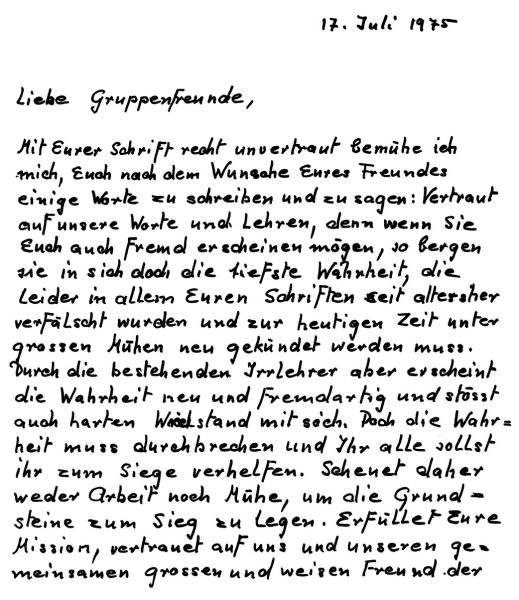 17. Juli 1975
Liebe Gruppenfreunde,
Mit Eurer Schrift recht unvertraut bemühe ich
mich, Euch nach dem Wunsche Eures Freundes
einige Worte zu schreiben und zu sagen: Vertraut
auf unsere Worte und Lehren, denn wenn Sie
Euch auch Fremd erscheinen mögen, so bergen
sie in sich doch die tiefste Wahrheit, die
Leider in allem Euren Schriften seit altersher
verfälscht wurden und zur heutigen Zeit unter
grossen Mühen neu gekündet werden muss.
Durch die bestehenden Irrlehrer aber erscheint
die Wahrheit neu und Fremdartig und stösst
auch harten mit sich. Doch die Wahr=
heit muss durchbrechen und Ihr alle sollst
ihr zum Siege verhelfen. Scheuet daher
weder Arbeit noch Mühe, um die Grund=
steine zum Sieg zu Legen. Erfüllet Eure
Mission, vertrauet auf uns und unseren ge=
meinsamen grossen und weisen Freund der